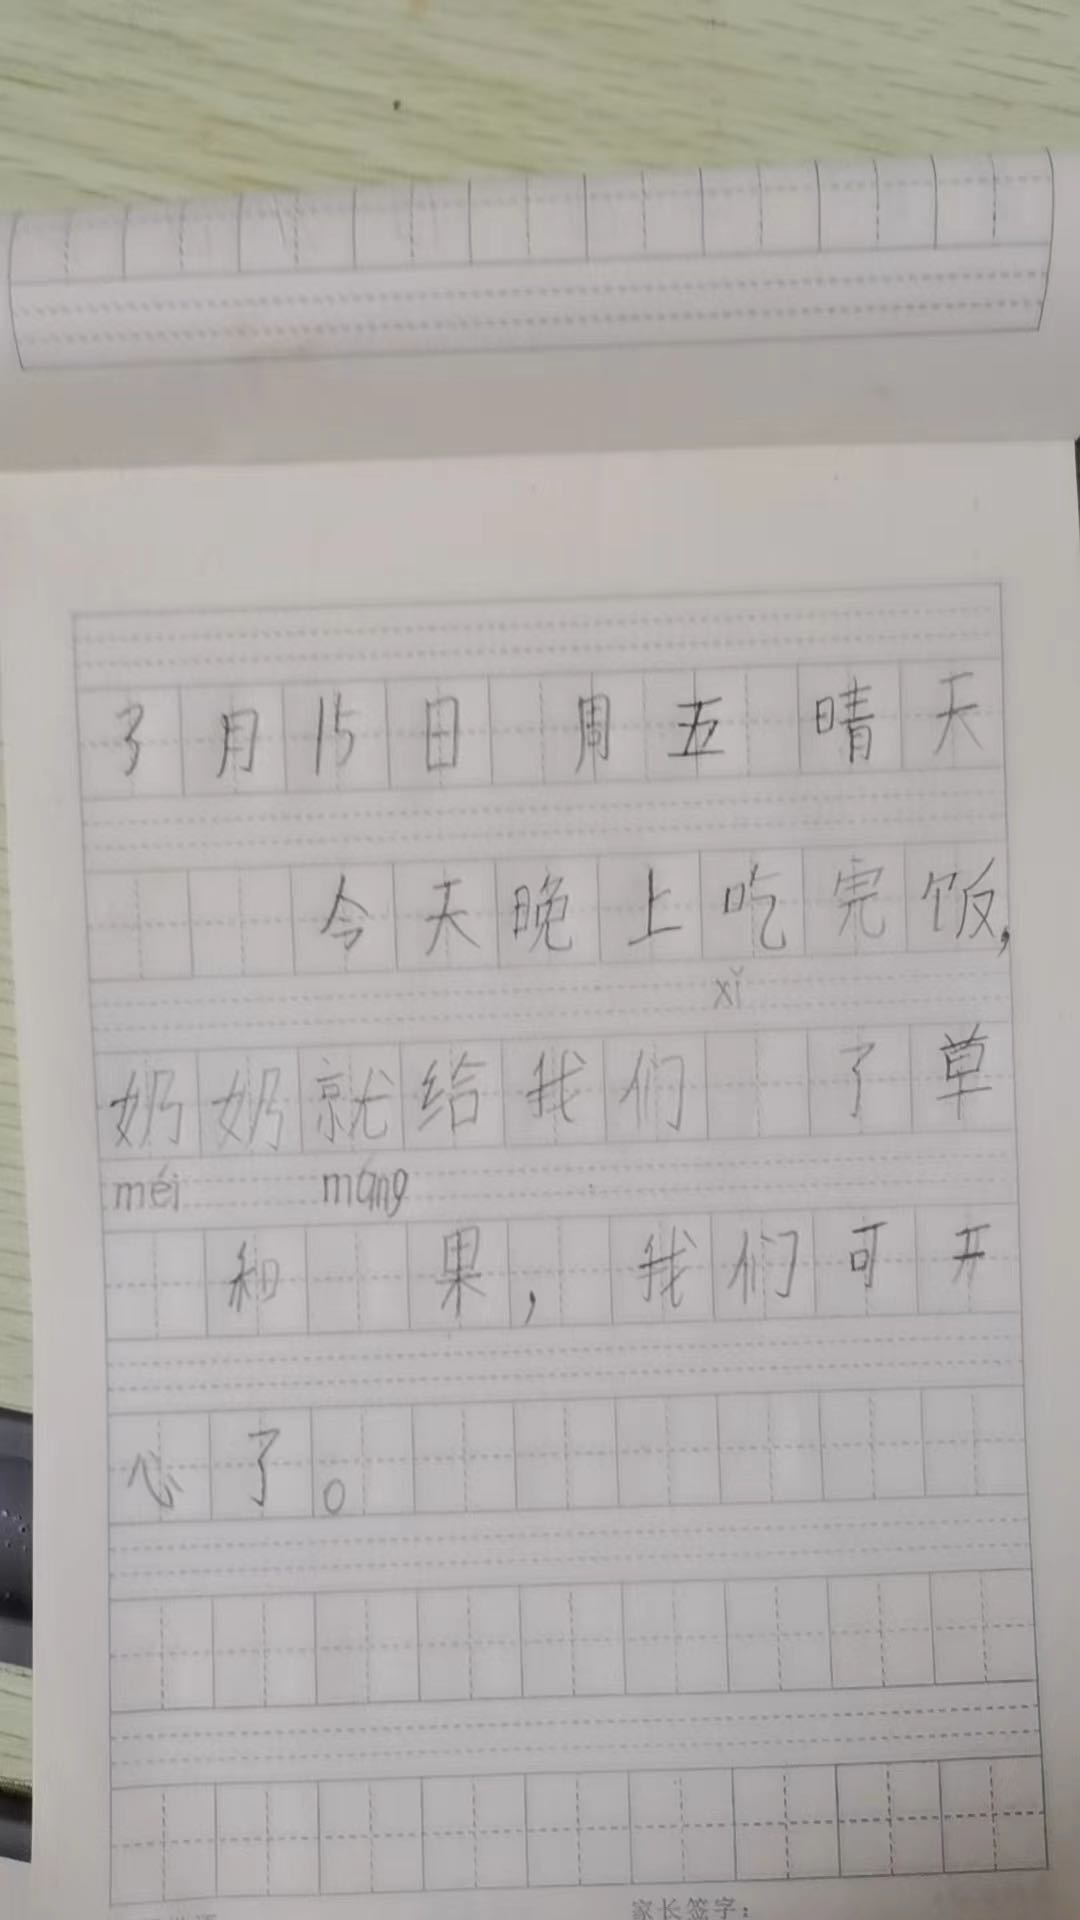 3月15日 周五 晴天
今天晚上吃完饭,
xǐ
奶奶就给我们 了草
méi máng
和 果,我们可开
心了。
家长签字: